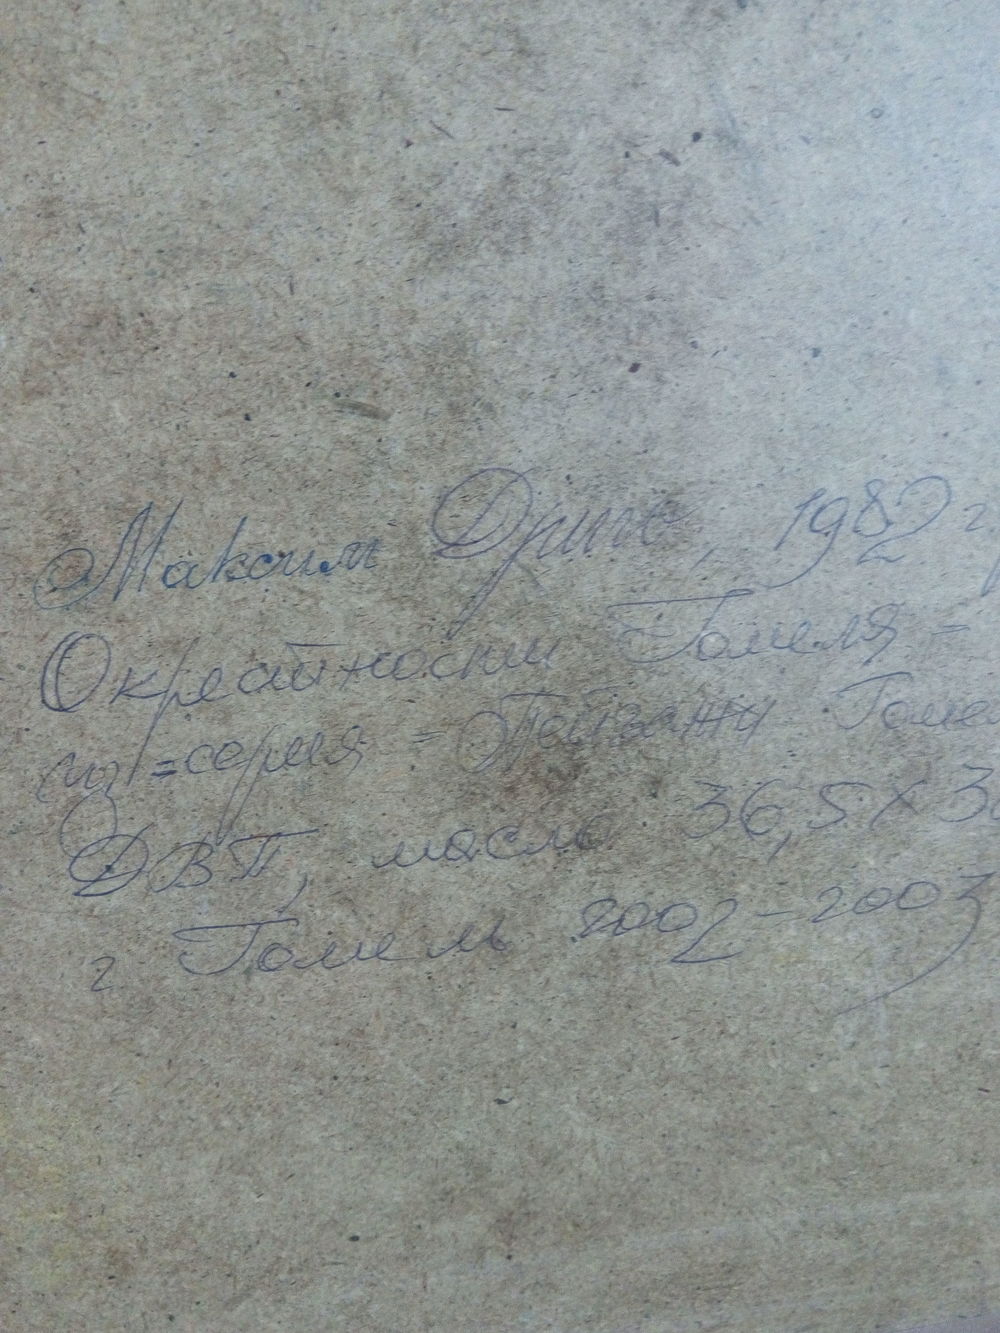 Максим Дрик, 1982 г
Окрестности Гомеля -
из =серия = Пейзажи Гомел
ДВП, масло 36,5 х 3
г Гомель 2002 - 2003